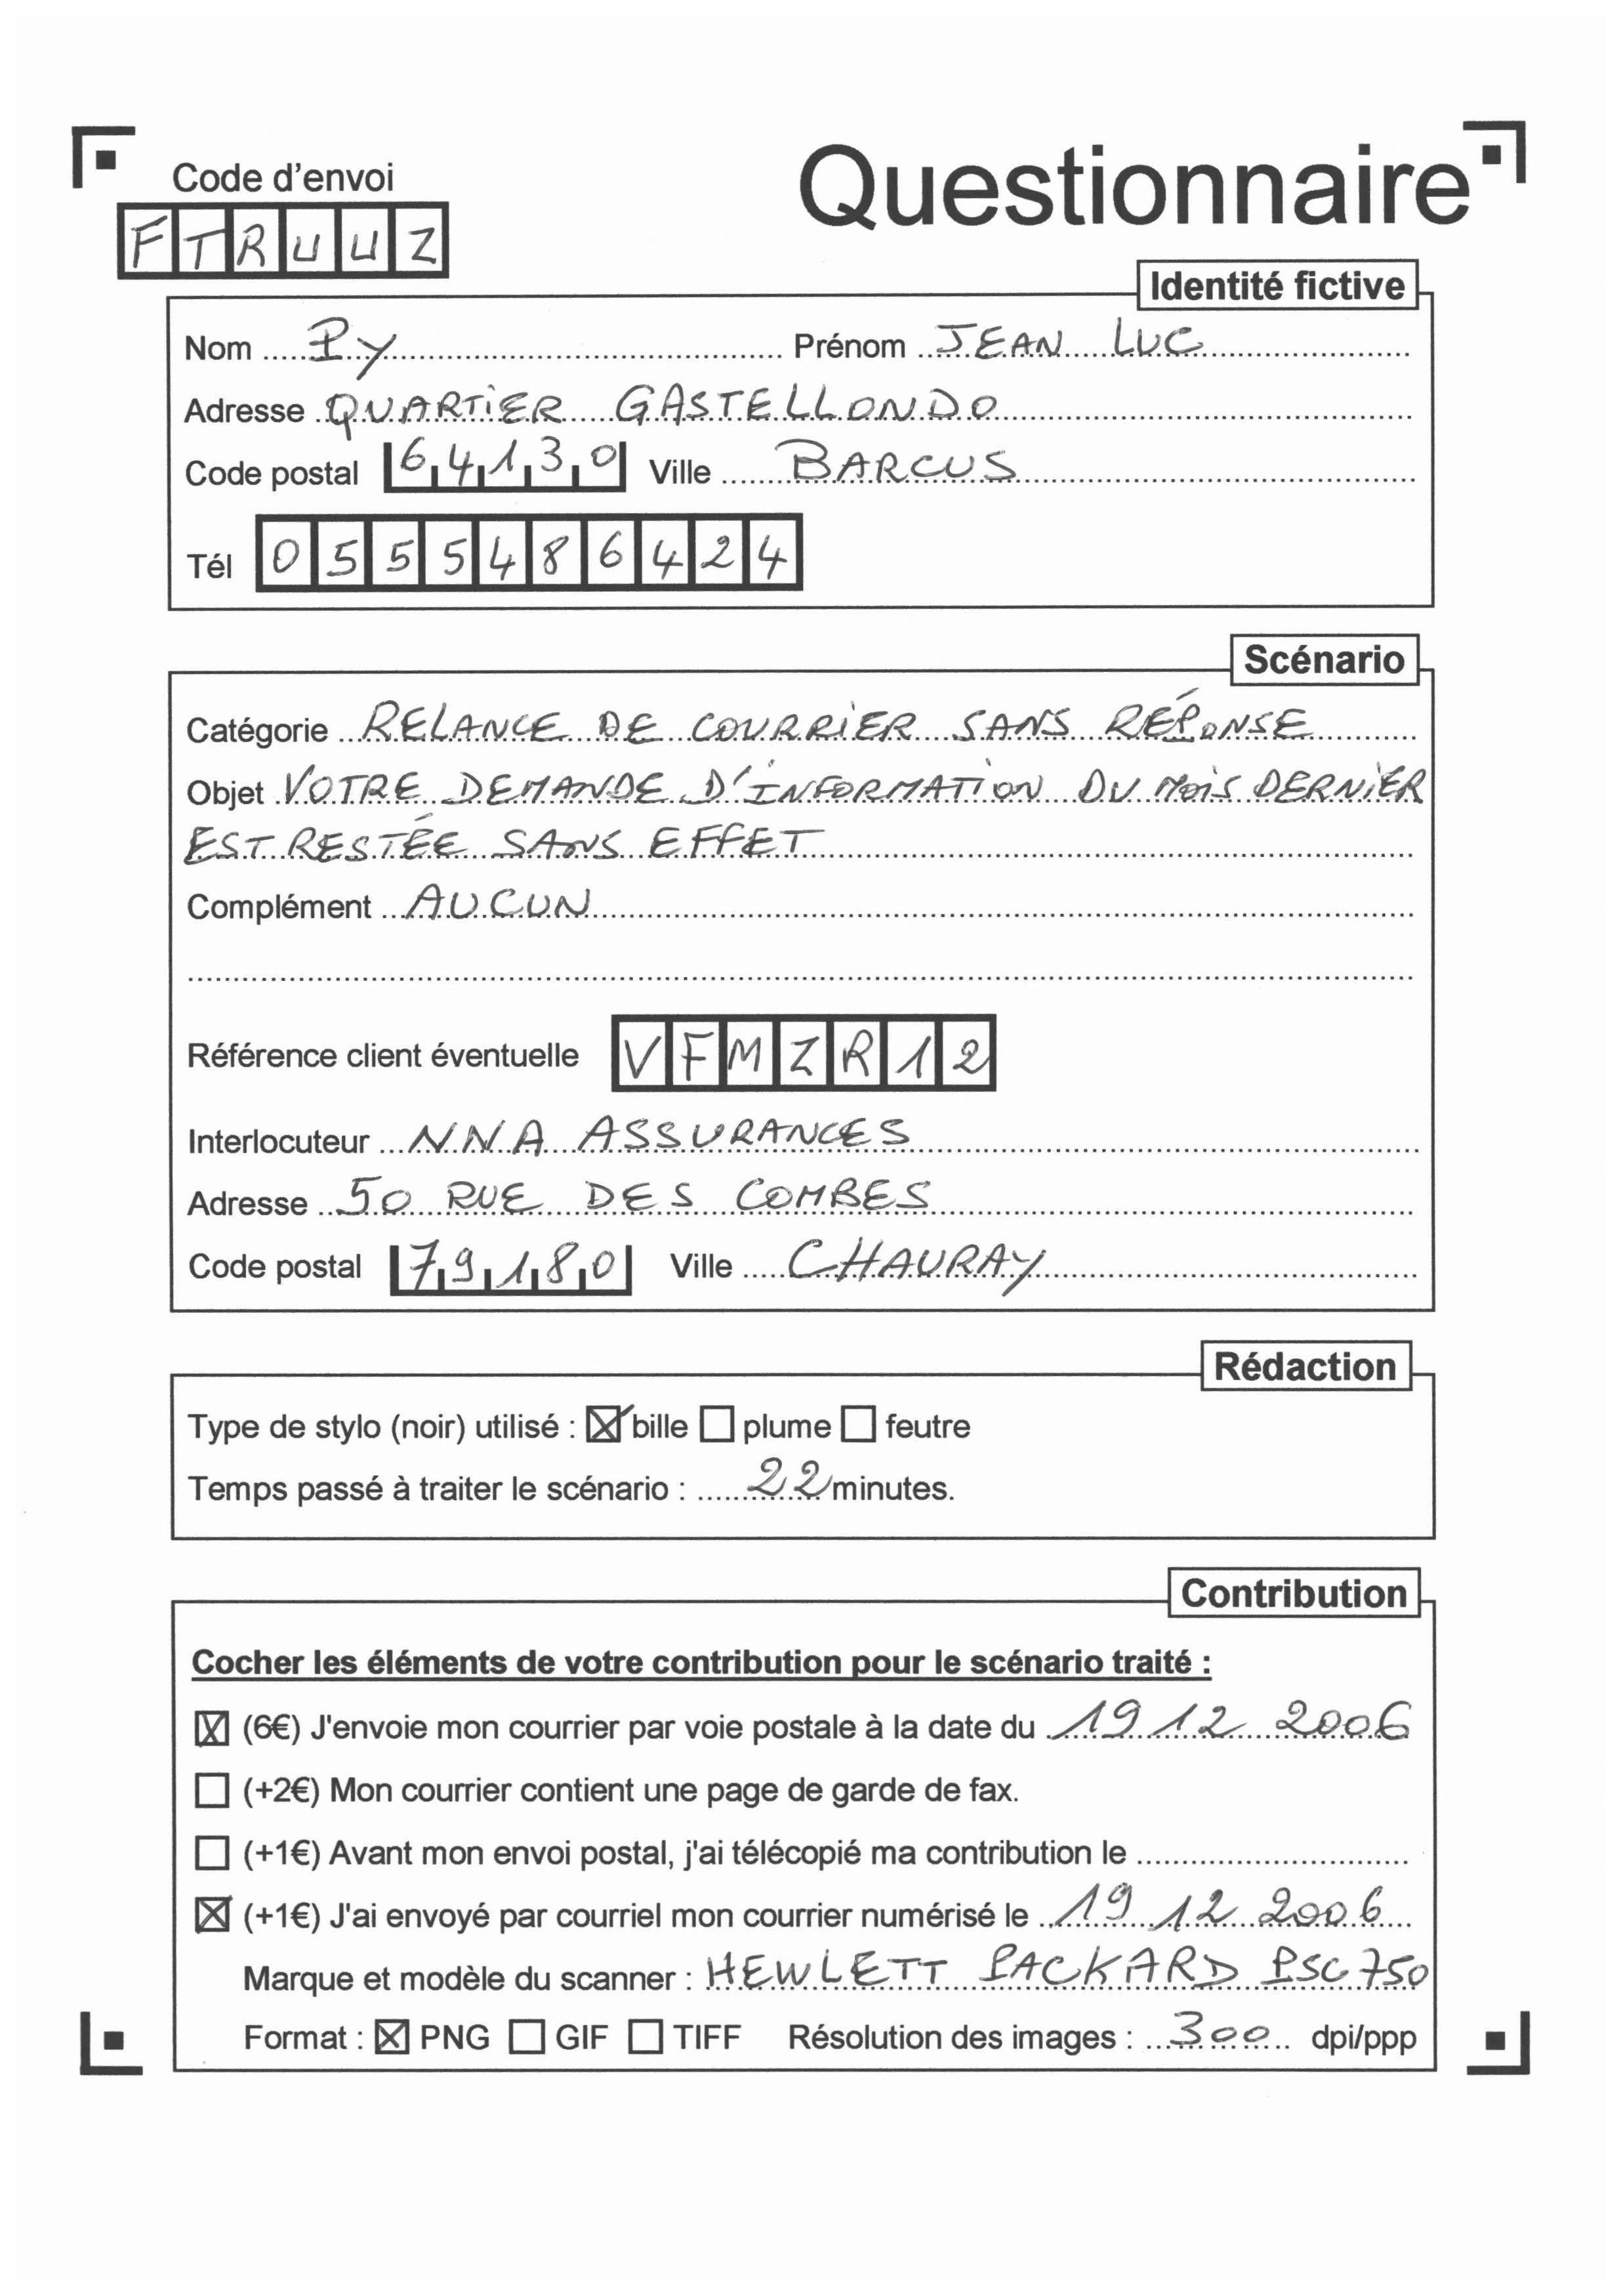 Code d'envoi
Questionnaire
FTRUUZ
Identité fictive
Nom PY Prénom JEAN LUC
Adresse QUARTIER GASTELLONDO
Code postal 64130 Ville BARCUS
Tél 0555486424
Scénario
Catégorie RELANCE DE COURRIER SANS RÉPONSE
Objet VOTRE DEMANDE D'INFORMATION DU MOIS DERNIER
EST RESTÉE SANS EFFET
Complément AUCUN
Référence client éventuelle VFMZR12
Interlocuteur NNA ASSURANCES
Adresse 50 RUE DES COMBES
Code postal 79180 Ville CHAURAY
Rédaction
Type de stylo (noir) utilisé : ☒ bille ☐ plume ☐ feutre
Temps passé à traiter le scénario : 22 minutes.
Contribution
Cocher les éléments de votre contribution pour le scénario traité :
☒ (6€) J'envoie mon courrier par voie postale à la date du 19 12 2006
☐ (+2€) Mon courrier contient une page de garde de fax.
☐ (+1€) Avant mon envoi postal, j'ai télécopié ma contribution le
☒ (+1€) J'ai envoyé par courriel mon courrier numérisé le 19 12 2006
Marque et modèle du scanner : HEWLETT PACKARD PSC 750
Format : ☒ PNG ☐ GIF ☐ TIFF Résolution des images : 300 dpi/ppp